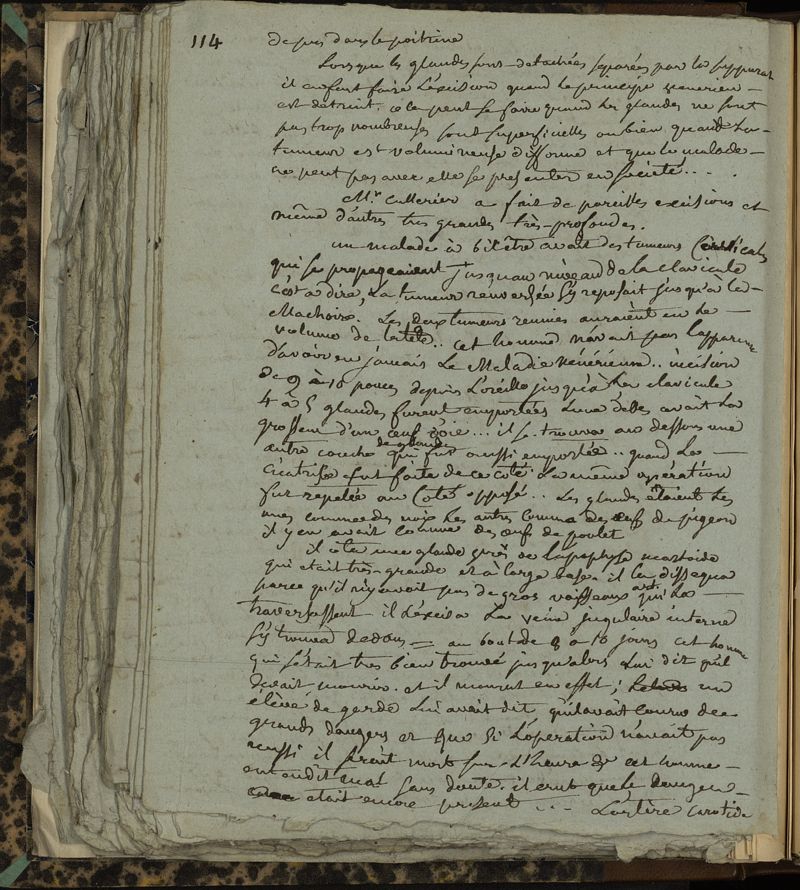 114
de pus dans la poitrine
Lorsque les glandes sont detachées separées par la suppurat
il en faut faire l'éxcision quand le principe venerien
est détruit. cela peut se faire quand les glandes ne sont
pas trop nombreuses sont superficielles ou bien quand la
tumeur est volumineuse difforme et que le malade
ne peut pas avec elle se presenter en société...
Mr. Cullerier a fait de pareilles excisions et
même d'autres tres grandes très-profondes.
un malade à bicêtre avait des tumeurs Cervicales
qui se propageaient jusqu'au niveau de la clavicule
c'est a dire, la tumeur renversée s'y reposait jusqu'à la
Machoire. Les deux tumeurs reunies auraient eu le
volume de la tête.. cet homme n'avait pas l'apparence
d'avoir eu jamais la Maladie vénérienne.. incision
de 9 à 10 pouces depuis l'oreille jusqu'à la clavicule
4 à 5 glandes furent emportées l'une d'elles avait la
grosseur d'un œuf d'oie... il se trouva au dessous une
autre couche de glandes qui fut aussi emportée.. quand la
cicatrise fut faite de ce coté la même opération
fut repetée au Coté opposé.. Les glandes étaient les
unes comme des noix les autres comme des œufs de pigeon
il y en avait comme des œufs de poulet
il ôta une glande près de l'apophyse mastoide
qui était très-grande et à large base. il la dissequa
parce qu'il n'y avait pas de gros vaisseaux art. qui la
traversassent il l'éxcisa La veine jugulaire interne
s'y trouva dedans = au bout de 8 à 10 jours cet homme
qui s'était tres bien trouvé jusqu'alors lui dit qu'il
devait mourir. et il mourut en effet; un
élève de garde lui avait dit qu'il avait couru de
grands dangers et que si l'operation n'avait pas
reussi il serait mort sur l'heure cet homme
entendit mal sans doute. il crut que le danger
était encore présent... L'artère carotide